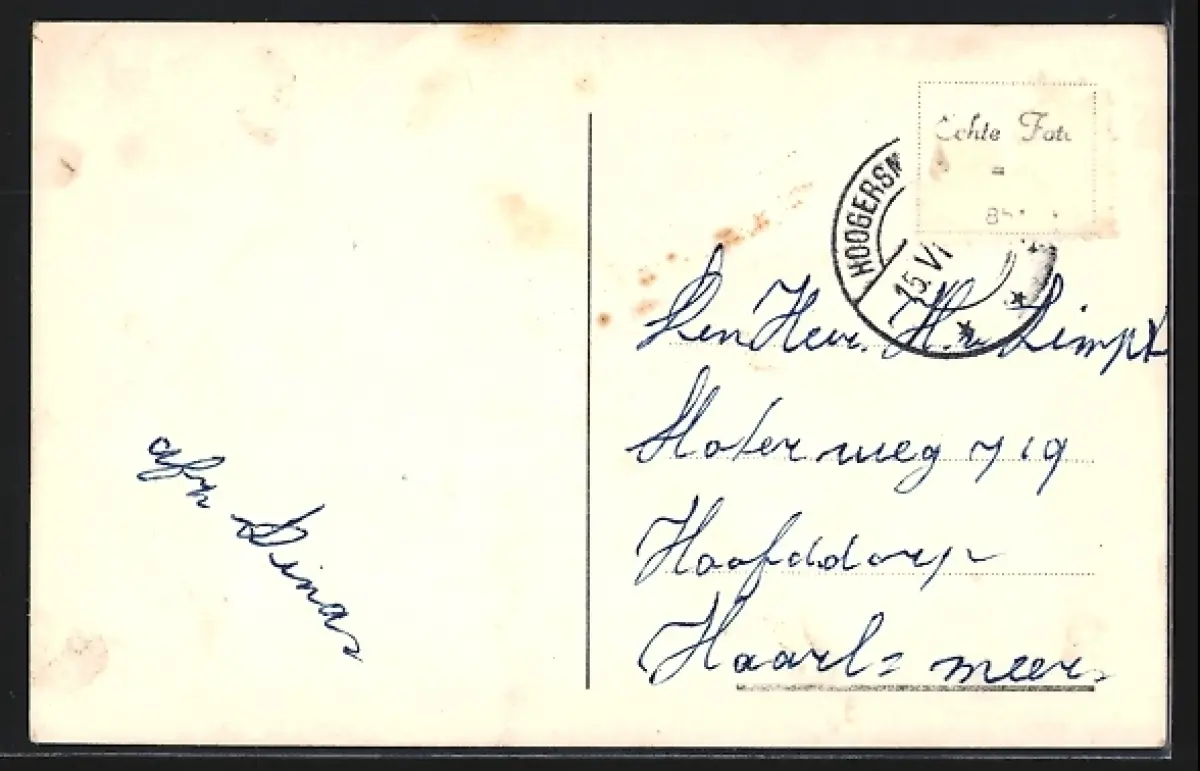 Echte Foto
HOOGERSM
15.VI
Den Heer. H. v. Limpt
Sloterweg 719
Hoofddorp
Haarl= meer.
afz Dina